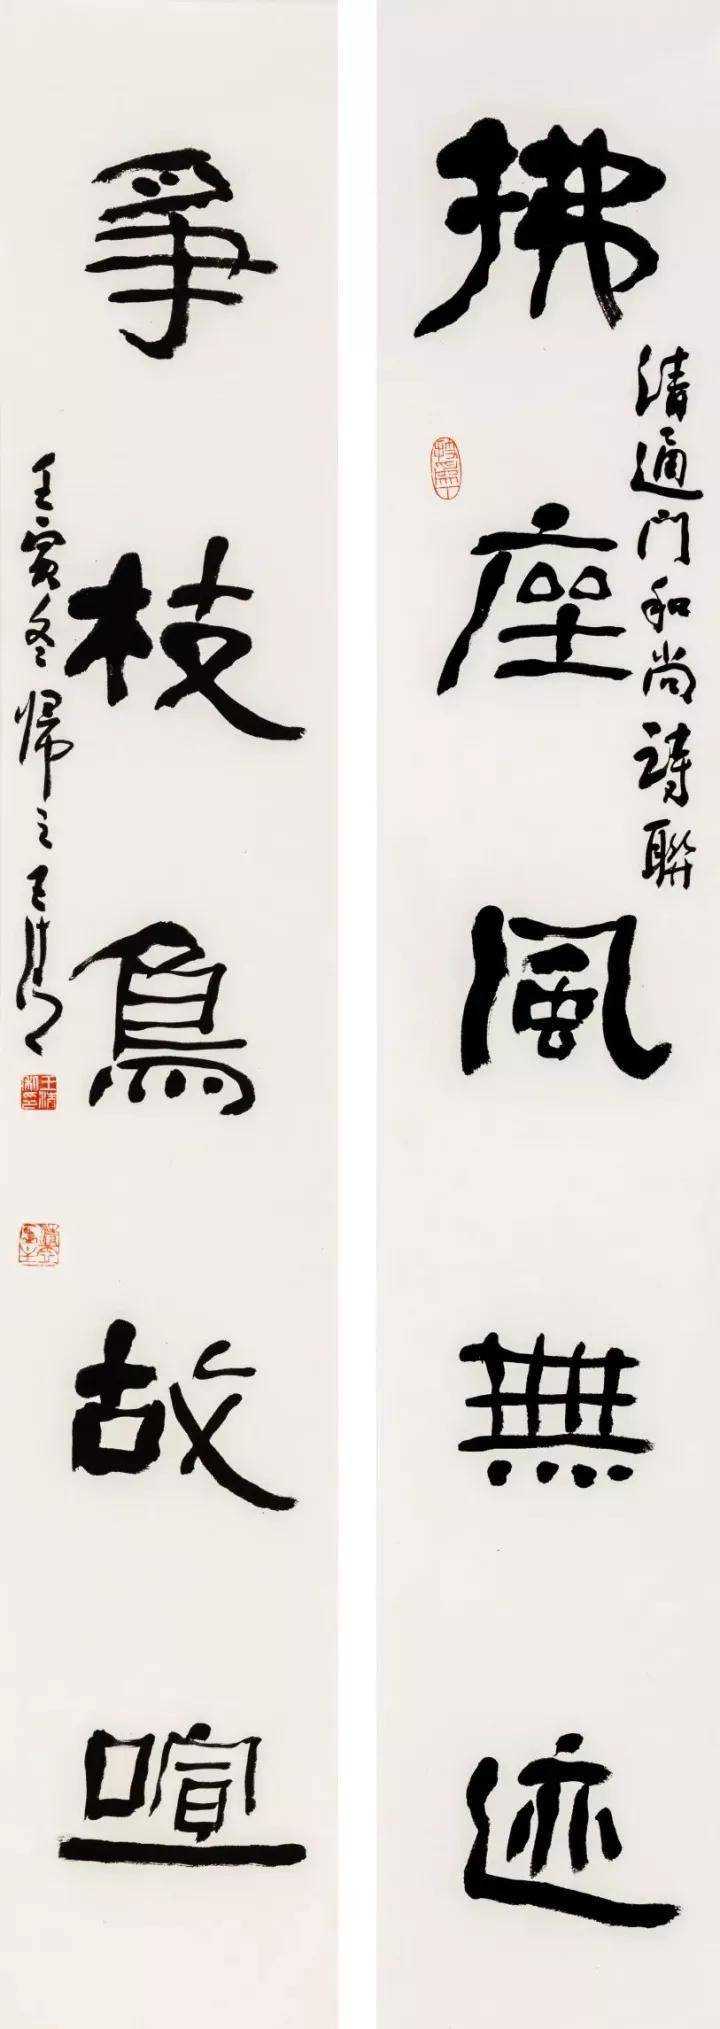 拂座風無迹
清通門和尚詩聯
爭枝鳥故喧
壬寅冬歸之王清